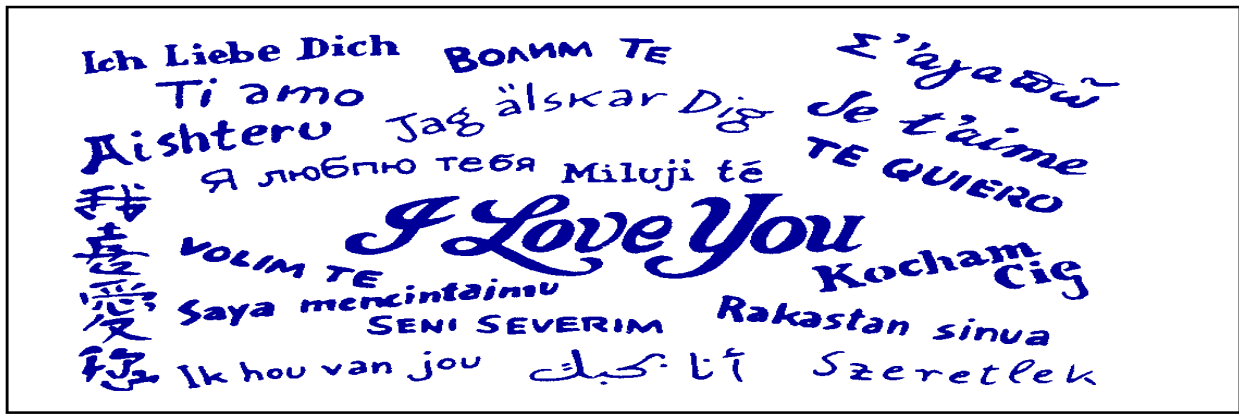 Ich Liebe Dich
Волим ТЕ
Σ'άγαπῶ
Ti amo
Jag älskar Dig
Je t'aime
Aishteru
Я люблю тебя
Miluji té
TE QUIERO
我喜愛你
I Love You
VOLIM TE
Kocham Cię
Saya mencintaimu
SENI SEVERIM
Rakastan sinua
Ik hou van jou
أنا بحبك
Szeretlek